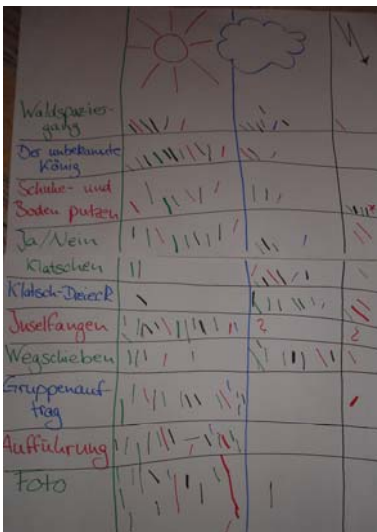 Waldspazier-
gang
Der unbekannte
König
Schuhe- und
Boden putzen
Ja/Nein
Klatschen
Klatsch-Dreieck
Inselfangen
?
?
Wegschieben
Gruppenauf-
trag
Aufführung
Foto